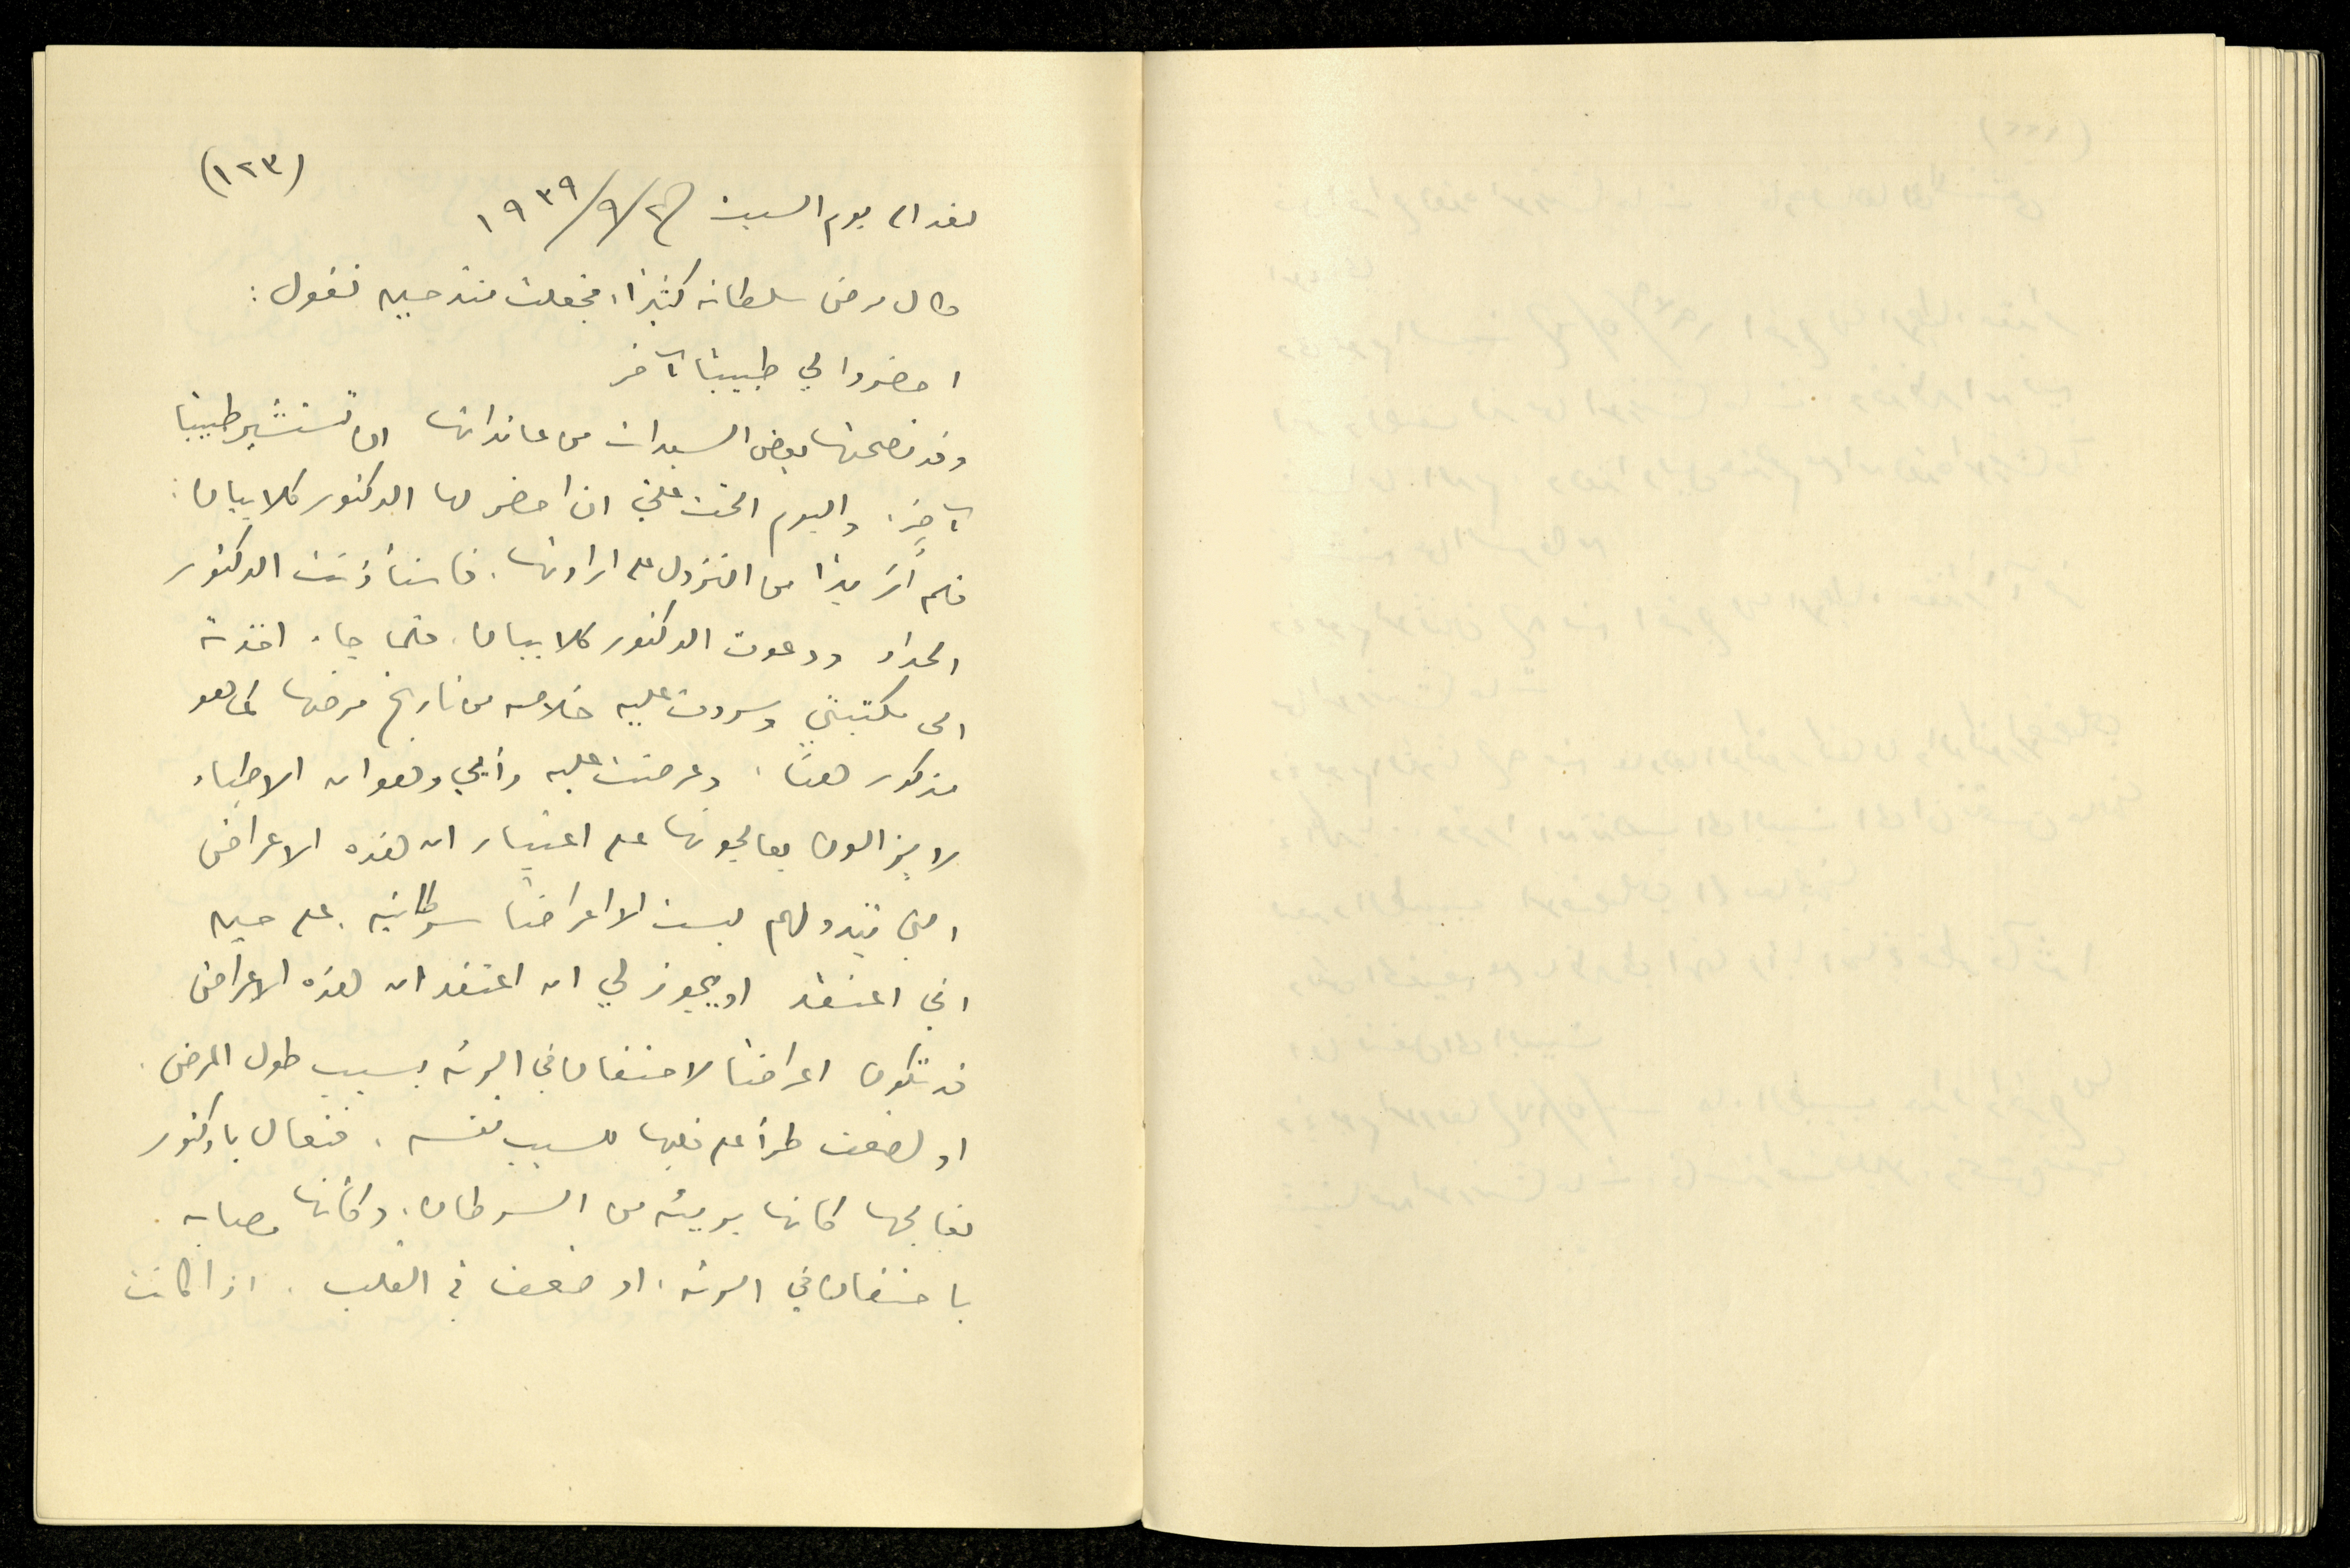 (١٢٣)
بغداد يوم السبت ٢/٩/١٩٣٩
طال مرض سلطانه كثيرًا، فجعلت منذ حين تقول:
احضروا لي طبيبًا آخر
وقد نصحتها بعض السيدات من عائداتها ان تستشير طبيبًا
آخر. واليوم الحّت عليّ ان احضر لها الدكتور كلابيان:
فلم أرَ بدًا من النزول على ارادتها. فاستأذنت الدكتور
الحداد ودعوت الدكتور كلابيان. فلما جاء اخذته
الى مكتبتي وسردت عليه خلاصه من تاريخ مرضها كما هو
مذكور هنا، وعرضت عليه رأيي وهو ان الاطباء
لا يزالون يعالجونها على اعتبار ان هذه الاعراض
التي تبدو لهم ليست الا اعراضًا سرطانيه. على حين
اني اعتقد او يجوز لي ان اعتقد ان هذه الاعراض
قد تكون اعراضًا لاحتقان في الرئه بسبب طول المرض.
او لضعف طرأ على قلبها للسبب نفسه. فتعال يا دكتور
نعالجها كأنها بريئه من السرطان، وكأنها مصابه
باحتقان في الرئه، او ضعف في القلب. اذا كانت